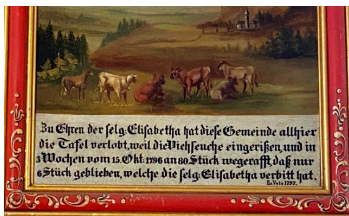 Zu Ehren der selg: Elisabetha hat diese Gemeinde allhier
die Tafel verlobt, weil die Viehseuche eingerißen, und in
3 Wochen vom 15. Okt. 1796 an 80 Stück wegerafft, daß nur
6 Stück geblieben, welche die selg: Elisabetha verbitt hat.
Ex Voto 1797.